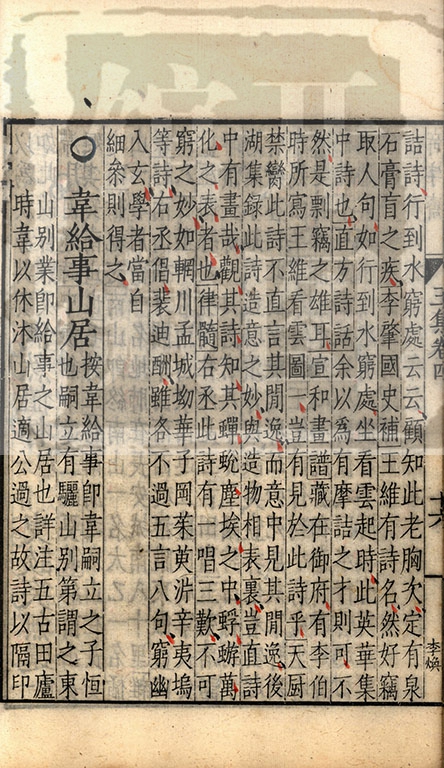 詰詩行到水窮處云云顧知此老胸次定有泉
石膏盲之疾李肇國史補王維有詩名然好竊
取人句如行到水窮處坐看雲起時此英華集
中詩也直方詩話余以為有摩詰之才則可不
然是剽竊之雄耳宣和畫譜藏在御府有李伯
時所寫王維看雲圖一豈有見於此詩乎天厨
禁臠此詩不直言其閒逸而意中見其閒逸後
湖集錄此詩造意之妙與造物相表裏豈直詩
中有畫哉觀其詩知其蟬蛻塵埃之中蜉蝣萬
化之表者也律髓右丞此詩有一唱三歎不可
窮之妙如輞川孟城坳華子岡茱萸沜辛夷塢
等詩右丞倡裴迪酬雖各不過五言八句窮幽
入玄學者當自
細叅則得之
○韋給事山居
按韋給事卽韋嗣立之子恒
也嗣立有驪山別第謂之東
山別業卽給事之山居也詳注五古田廬
時韋以休沐山居適公過之故詩以隔印
李煥